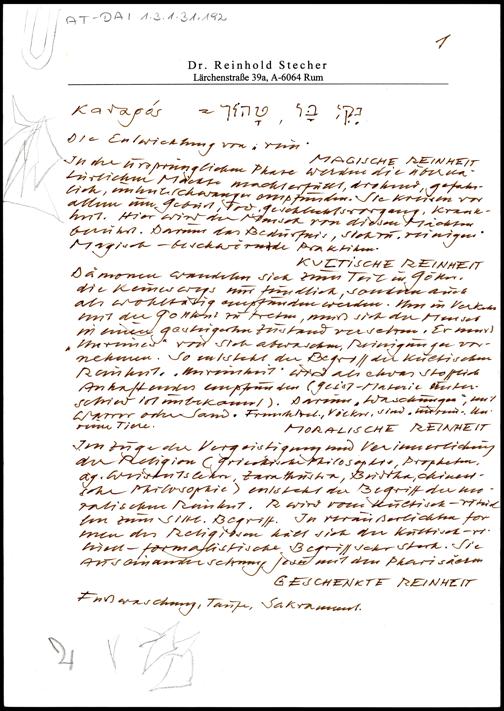 AT-DAI 1.3.1.31.192
1
Dr. Reinhold Stecher
Lärchenstraße 39a, A-6064 Rum
καθαρός = נָקִי, בַּר, טָהוֹר
Die Entwicklung von "rein"
MAGISCHE REINHEIT
In der ursprünglichen Phase werden die überna-
türlichen Mächte machterfüllt, drohend, gefähr-
lich, unheilschwanger empfunden. Sie kreisen vor
allem um Geburt, Tod, Geschlechtsvorgang, Krank-
heit. Hier wird der Mensch von diesen Mächten
berührt. Darum das Bedürfnis, sich zu "reinigen"
Magisch-beschwörende Praktiken.
KULTISCHE REINHEIT
Dämonen wandeln sich zum Teil in Götter,
die keineswegs nur feindlich, sondern auch
als wohltätig empfunden werden. Um in Verkehr
mit der Gottheit zu treten, muß sich der Mensch
in einen geeigneten Zustand versetzen. Er muß
"Unreines" von sich abwaschen, Reinigungen vor-
nehmen. So entsteht der Begriff der kultischen
Reinheit. "Unreinheit" wird als etwas stofflich
Anhaftendes empfunden (Geist-Materie Unter-
schied ist unbekannt). Darum "Waschungen" mit
Wasser oder Sand. Fremde Völker sind unrein. Un-
reine Tiere.
MORALISCHE REINHEIT
Im Zuge der Vergeistigung und Verinnerlichung
der Religion (Griechische Philosophie, Propheten,
äg. Weisheitslehre, Zarathustra, Buddha, Chinesi-
sche Philosophie) entsteht der Begriff der mo-
ralischen Reinheit. R wird vom kultisch-rituel-
len zum sittl. Begriff. In veräußerlichten For-
men der Religionen hielt sich der kultisch-ri-
tuell-formalistische Begriff sehr stark. Sie
Auseinandersetzung Jesu mit den Pharisäern
GESCHENKTE REINHEIT
Fußwaschung, Taufe, Sakrament.